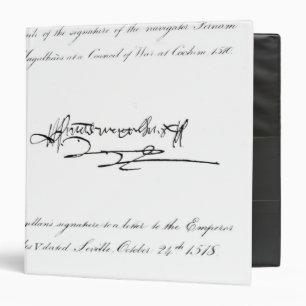 of the signature of the navigator Fernam
Magalhães at a Council of War at Cochim 1510.
signature to a letter to the Emperor
V dated Seville, October 24th 1518.